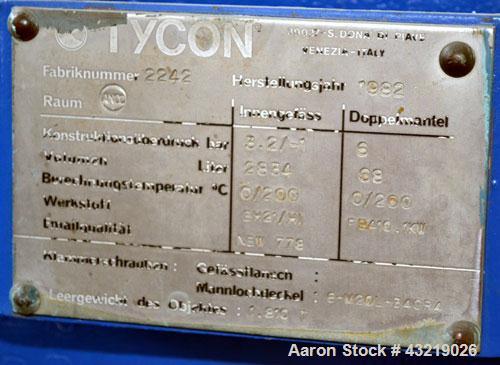 TYCON
30027-S. DONA DI PIAVE
VENEZIA-ITALY
Fabriknummer 2242 Herstellungsjahr 1982
Raum
Innengefäss Doppelmantel
Konstruktionsüberdruck bar 3.2/-1 6
Volumen Liter 2834
Berechnungstemperatur °C 0/200 0/260
Werkstoff
Emailqualität NEW 778
Klammerschrauben: Gefässflansch:
Mannlochdeckel:
Leergewicht des Objektes:
Aaron Stock # 43219026